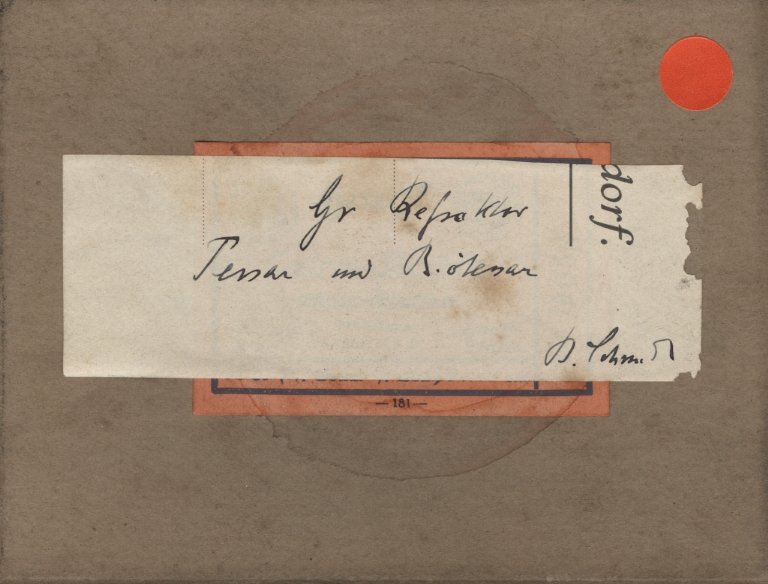 Gr Refraktor
Tessar und Biotessar
B. Schmidt
dorf.
—181—